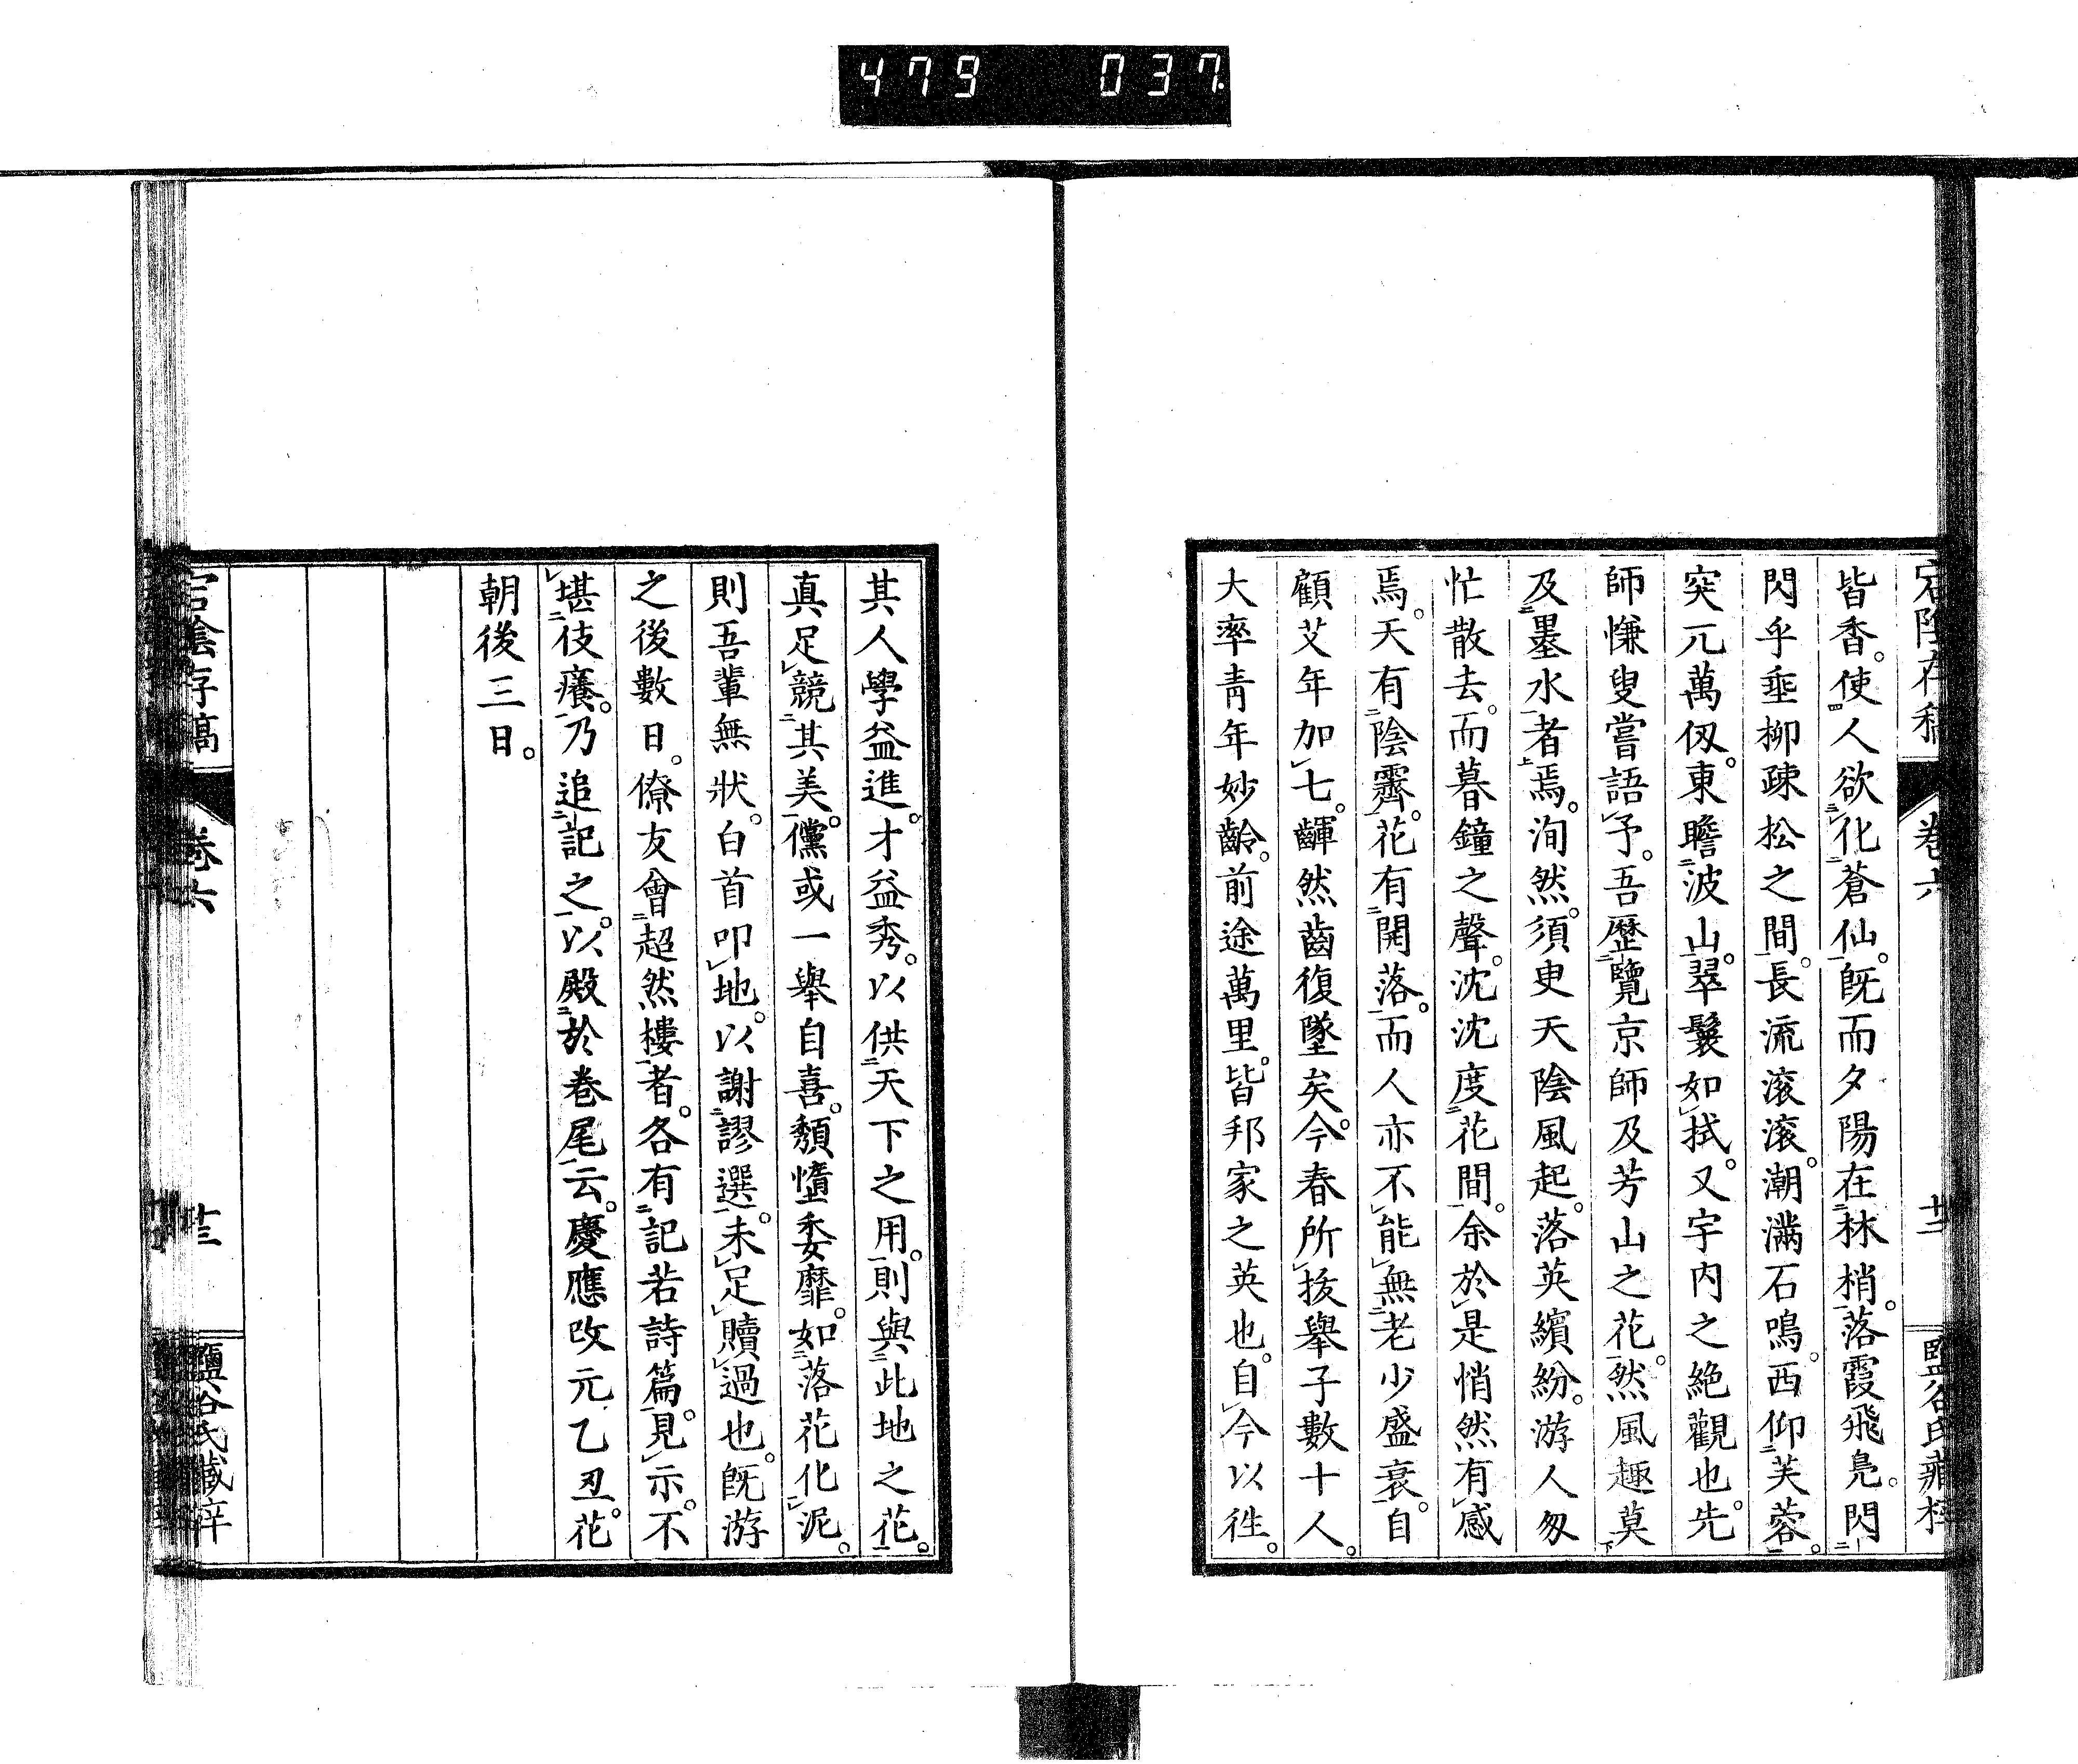 479 037.
宕陰存稿 卷六 廿二 鹽谷氏藏梓
皆香。使人欲化蒼仙。既而夕陽在林梢。落霞飛鳧。閃
閃乎垂柳疎松之間。長流滚滚。潮滿石鳴。西仰芙蓉。
突兀萬仭。東瞻波山。翠鬟如拭。又宇内之絶觀也。先
師慊叟嘗語予。吾歷覽京師及芳山之花。然風趣莫
及墨水者焉。洵然。須臾天陰風起。落英繽紛。游人匆
忙散去。而暮鐘之聲。沈沈度花間。余於是悄然有感
焉。天有陰霽。花有開落。而人亦不能無老少盛衰。自
顧艾年加七。齳然齒復墜矣。今春所拔舉子數十人。
大率靑年妙齡。前途萬里。皆邦家之英也。自今以徃。
其人學益進。才益秀。以供天下之用。則與此地之花。
真足競其美。儻或一舉自喜。頽惰委靡。如落花化泥。
則吾輩無狀。白首叩地。以謝謬選。未足贖過也。既游
之後數日。僚友會超然樓者。各有記若詩篇。見示。不
堪伎癢。乃追記之。以殿於卷尾云。慶應改元乙丑。花
朝後三日。
宕陰存稿 卷六 廿三 鹽谷氏藏梓